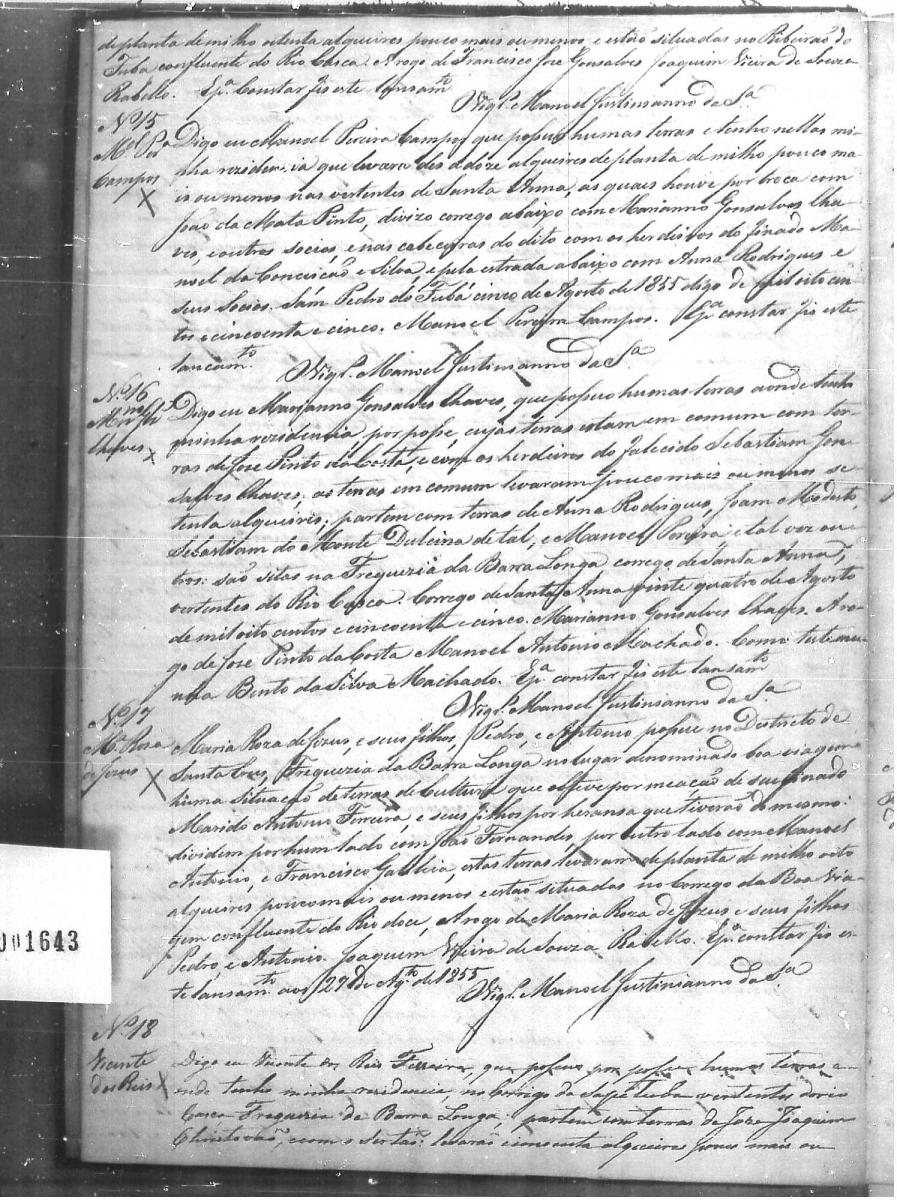 de planta de milho oitenta alqueires pouco mais ou menos e estão situadas no Ribeirão do
Tuba confluente do Rio Casca. Arogo de Francisco Jose Gonsalves Joaquim Vieira de Souza
Rabello. Epª. Constar fis este lansamto
Vigrº. Manoel Justinianno da Sª
Nº 15
Mel Pra
Campos
Digo eu Manoel Pereira Campos que possuo humas terras e tenho nellas mi-
nha rezidencia que levara des a dóze alqueires de planta de milho pouco ma-
is ou menos nas vertentes de Santa Anna, as quaes houve por troca com
João da Mata Pinto, divizo corrego abaixo com Marianno Gonsalves Cha-
ves, e outros socios, e nas cabeceiras do dito com os herdeiros do finado Ma-
noel da Conceisão e Silva, e pela estrada abaixo com Anna Rodrigues e
seus Socios. Sám Pedro do Tubá cinco de Agosto de 1855 digo de mil oito cen-
tos e cincoenta e cinco. Manoel Pereira Campos. Epª constar fis este
lancamto.
Vigrº. Manoel Justinianno da Sª
Nº 16
Chaves
Digo eu Marianno Gonsalves Chaves, que possuo humas terras aonde tenho
minha rezidencia, por posse, cujas terras estam em comum com ter-
ras de Jose Pinto da Costa, e com os herdeiros do falecido Sebastiam Gon-
salves Chaves. as terras em comum levaram pouco mais ou menos se-
tenta alqueires; partem com terras de Anna Rodrigues, Joam Modesto,
Sebastiam do Monte Dulcina de tal, e Manoel Pereira e tal vez ou-
tros: são sitas na Freguezia da Barra Longa corrego de Santa Anna,
vertentes do Rio Casca. Corrego de Santa Anna vinte quatro de Agosto
de mil oito centos e cincoenta e cinco. Marianno Gonsalves Chaves. Aro-
go de Jose Pinto da Costa Manoel Antonio Machado. Como testemu-
nha Bento da Silva Machado. Epª constar fis este lansamto
Vigrº. Manoel Justinianno da Sª
Nº 17
Mª Rosa
de Jezus
Maria Roza de Jezus e seus filhos, Pedro, e Antonio possue no Destricto de
Santa Crus, Freguezia da Barra Longa no lugar denominado boa viagem
huma situação de terras de Cultura que obteve por meação de seu finado
Marido Antonio Ferreira, e seus filhos por heransa que tiverão do mesmo:
dividem por hum lado com João Fernandes, por outro lado com Manoel
Antonio, e Francisco Galdia estas terras levaram de planta de milho oito
alqueires pouco mais ou menos e estão situadas no Corrego da Boa Via-
gem confluente do Rio doce, Arogo de Maria Roza de Jezus e seus filhos
Pedro, e Antonio. Joaquim Vieira de Souza Rabello. Epª. constar fis es-
te lansamto. aos 29 de Agto. de 1855
Vigrº. Manoel Justinianno da Sª
Nº 18
Vicente
dos Reis
Digo eu Vicente dos Reis Ferreira, que possuo por posse humas terras a-
onde tenho minha rezidencia, no Corrigo da Sapetuba vertentes do rio
Casca Freguezia da Barra Longa; partem com terras de Joze Joaquim
Christovão, e com o sertão: levarão cincoenta alqueires pouco mais ou
001643